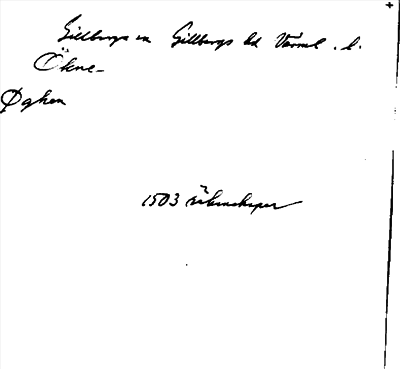 Gillbergs sn Gillbergs hd Värml. l.
Ökne-
Øghen
1503 räkenskaper